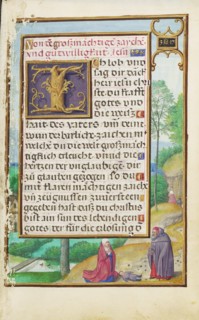 Von de großmächtigē zaichē
vnd gutwilligkeit Jesu
Ich lob vnd
sag dir danck
herr iesu chri
ste du krafft
gottes vnd
die weiß
hait des vaters vm deine
wunderbarliche zaichen in
welche du die welt großmä
chtiglich erleucht vnnd die
hertzen der vnglaubigē dir
zu glauben gezogen So du
mit klaren mächtigen zaichē
vn zeugnussen zuuersteen
gegeben hast du christus
bist ain sun des lebendigen
gottes der für die erlosung d